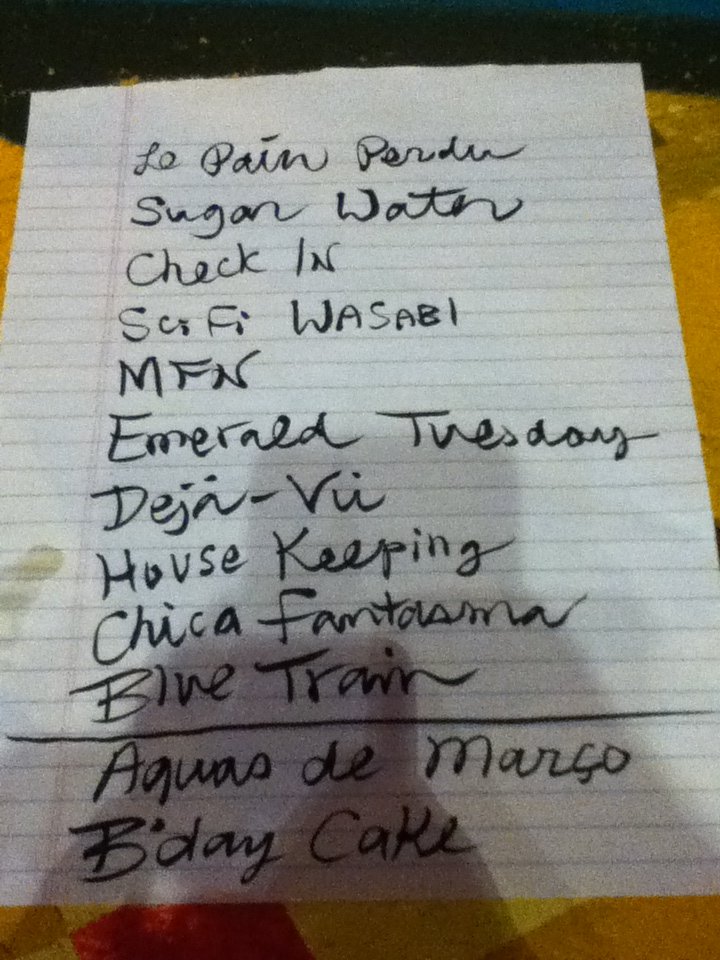 Le Pain Perdu
Sugar Water
Check IN
Sci Fi WASABI
MFN
Emerald Tuesday
Dejà-Vu
House Keeping
Chica Fantasma
Blue Train
Aguas de Março
B'day Cake